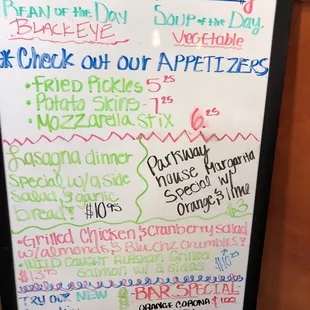 BEAN OF THE DAY
BLACKEYE
Soup of the Day
Vegetable
* Check out our APPETIZERS
• FRIED PICKLES 5.25
• Potato Skins - 7.25
• MOZZARELLA STIX 6.25
Lasagna dinner
Special w/a side
salad & garlic
bread $10.95
Parkway
house Margarita
Special w/
Orange & lime
$3
• Grilled Chicken & cranberry salad
w/almonds & Bluchz Crumbles
• WILD CAUGHT ALASKAN Grilled
Salmon w/a
$13.95
TRY OUR NEW
BAR SPECIAL
ORANGE CORONA